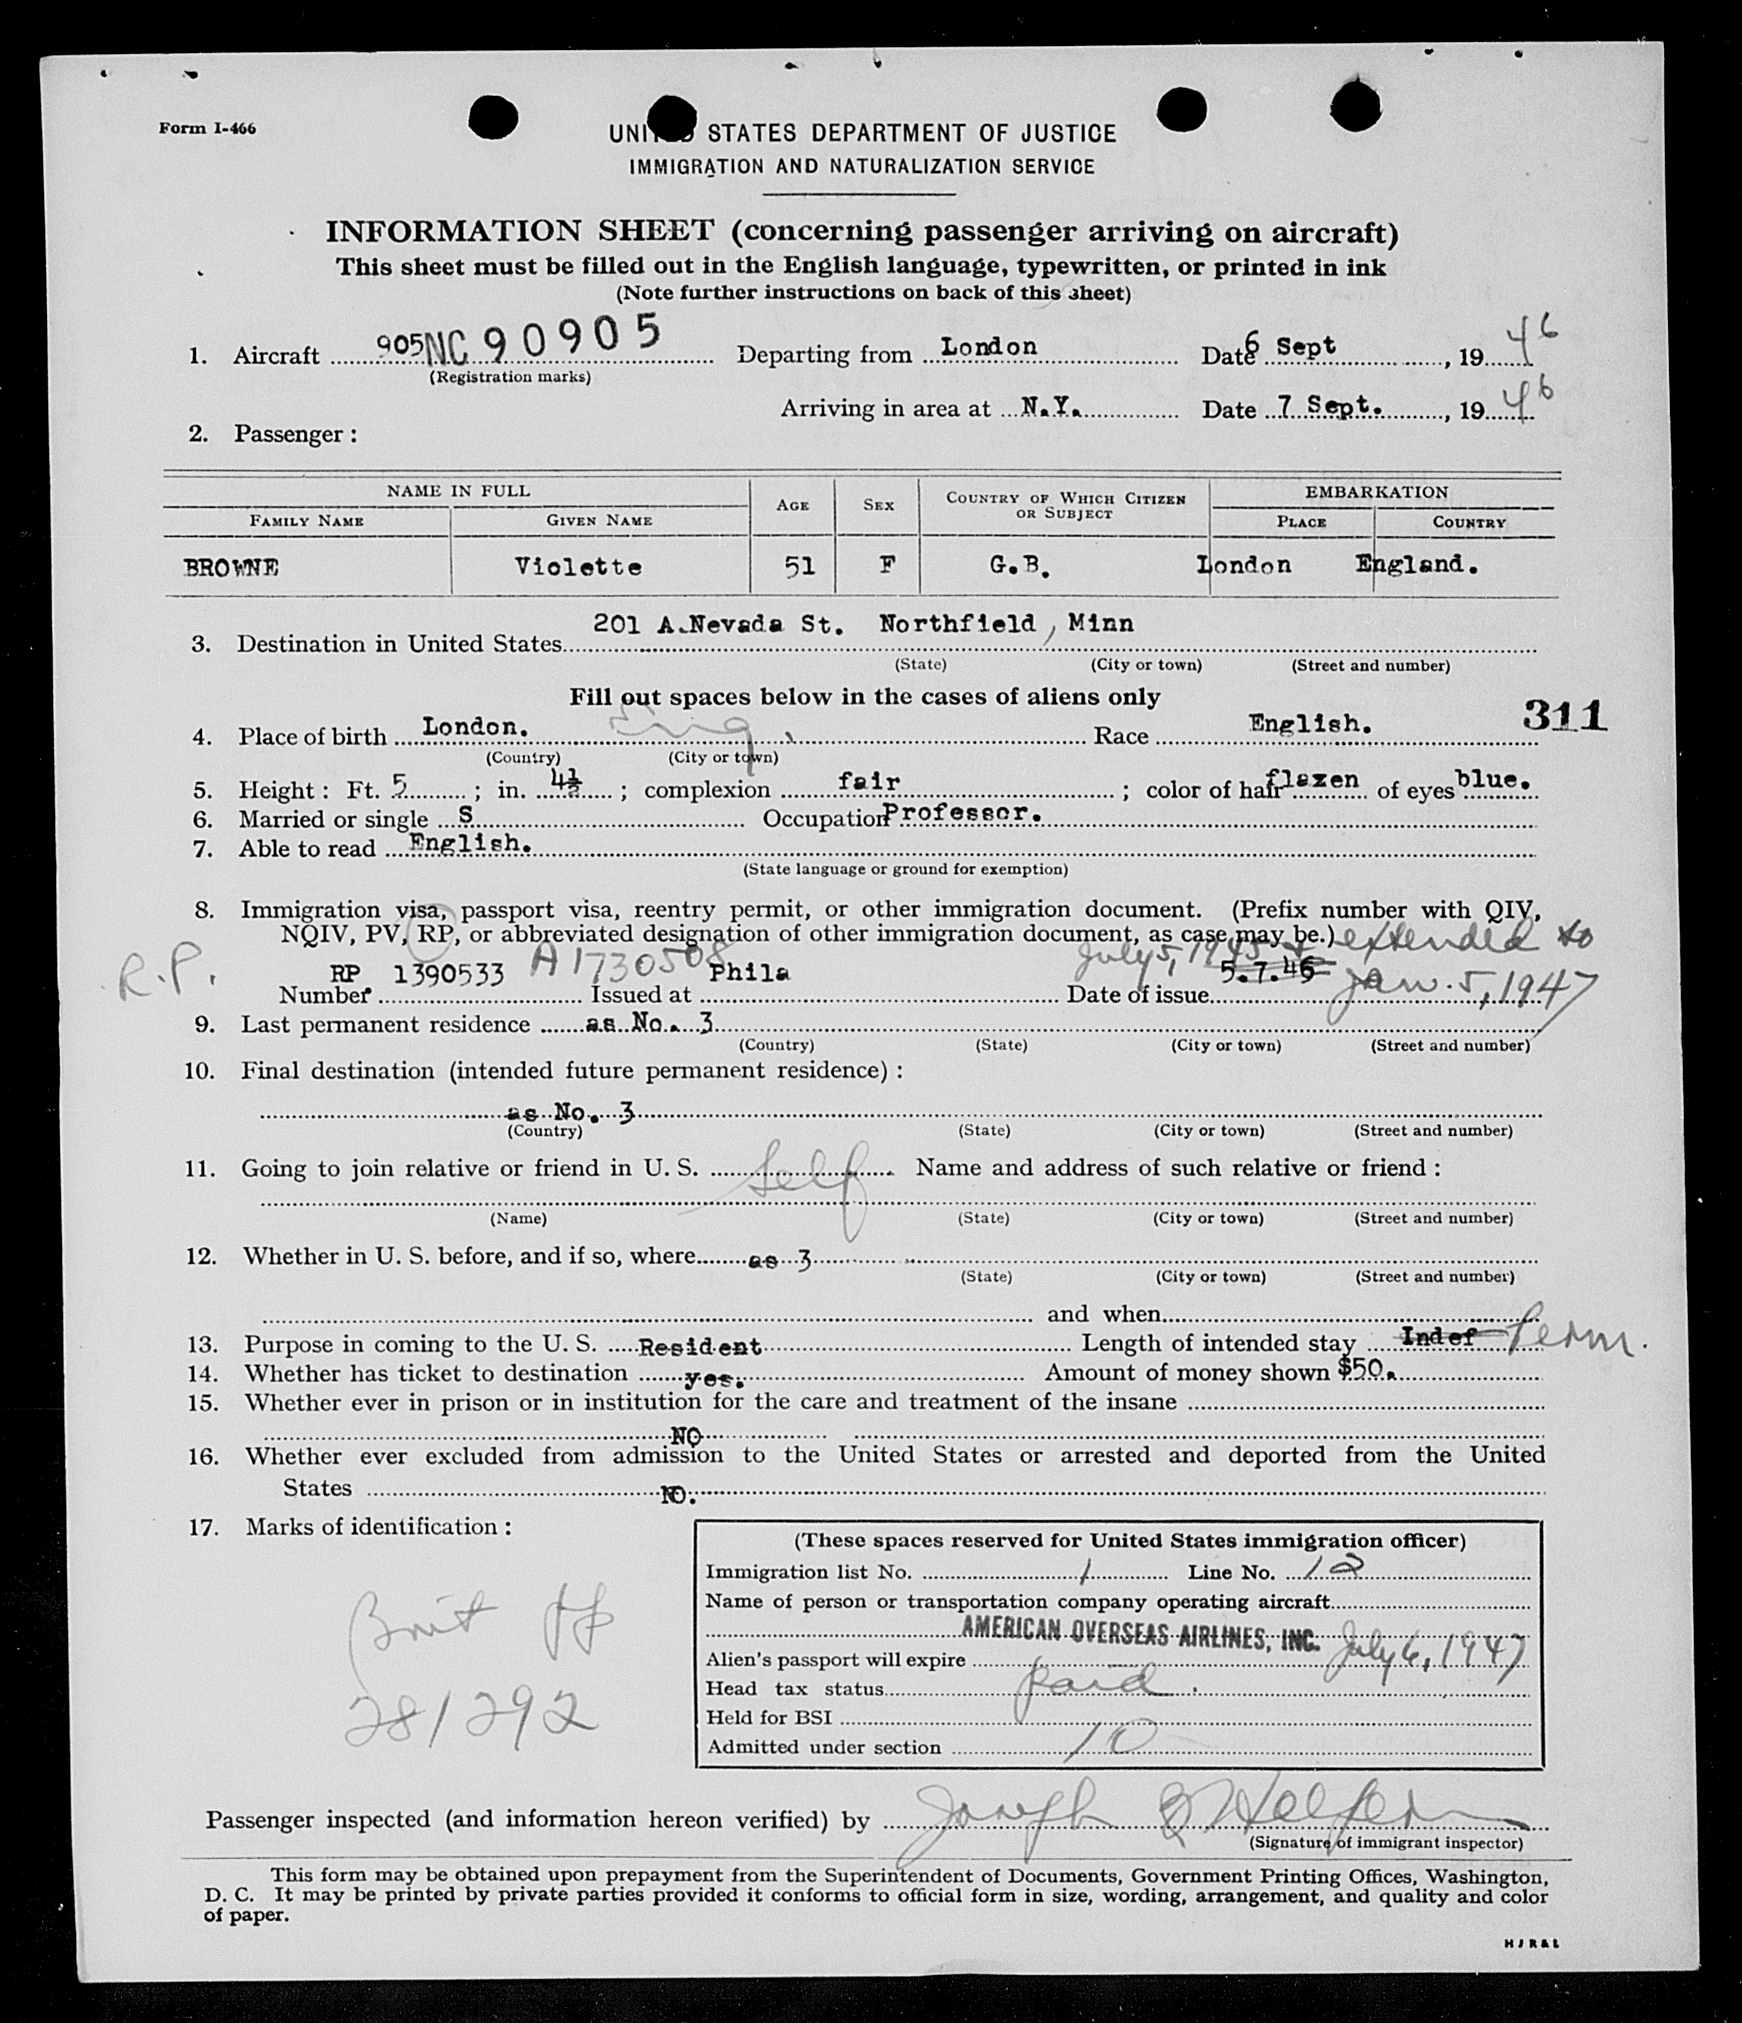 Form I-466
UNITED STATES DEPARTMENT OF JUSTICE
IMMIGRATION AND NATURALIZATION SERVICE
INFORMATION SHEET (concerning passenger arriving on aircraft)
This sheet must be filled out in the English language, typewritten, or printed in ink
(Note further instructions on back of this sheet)
1. Aircraft 905NC 90905 Departing from London Date 6 Sept, 1946
(Registration marks)
Arriving in area at N.Y. Date 7 Sept., 1946
2. Passenger:
NAME IN FULL AGE SEX COUNTRY OF WHICH CITIZEN OR SUBJECT EMBARKATION
FAMILY NAME GIVEN NAME PLACE COUNTRY
BROWNE Violette 51 F G.B. London England.
3. Destination in United States 201 A.Nevada St. Northfield, Minn
(State) (City or town) (Street and number)
Fill out spaces below in the cases of aliens only
311
4. Place of birth London. Eng. Race English.
(Country) (City or town)
5. Height: Ft. 5; in. 4½; complexion fair; color of hair flaxen of eyes blue.
6. Married or single S Occupation Professor.
7. Able to read English.
(State language or ground for exemption)
8. Immigration visa, passport visa, reentry permit, or other immigration document. (Prefix number with QIV,
NQIV, PV, RP, or abbreviated designation of other immigration document, as case may be.) extended to
R.P. RP 1390533 A1730508 Phila July 5, 1945 5.7.45 Jan. 5, 1947
Number Issued at Date of issue
9. Last permanent residence as No. 3
(Country) (State) (City or town) (Street and number)
10. Final destination (intended future permanent residence):
as No. 3
(Country) (State) (City or town) (Street and number)
11. Going to join relative or friend in U. S. Self Name and address of such relative or friend:
(Name) (State) (City or town) (Street and number)
12. Whether in U. S. before, and if so, where as 3
(State) (City or town) (Street and number)
and when
13. Purpose in coming to the U. S. Resident Length of intended stay Indef Perm.
14. Whether has ticket to destination yes. Amount of money shown $50.
15. Whether ever in prison or in institution for the care and treatment of the insane
NO
16. Whether ever excluded from admission to the United States or arrested and deported from the United
States NO.
17. Marks of identification:
(These spaces reserved for United States immigration officer)
Immigration list No. 1 Line No. 12
Name of person or transportation company operating aircraft
AMERICAN OVERSEAS AIRLINES, INC.
Alien's passport will expire July 6, 1947
Head tax status Paid.
Held for BSI
Admitted under section 10
Brit pp
281292
Passenger inspected (and information hereon verified) by Joseph
(Signature of immigrant inspector)
This form may be obtained upon prepayment from the Superintendent of Documents, Government Printing Offices, Washington,
D. C. It may be printed by private parties provided it conforms to official form in size, wording, arrangement, and quality and color
of paper.
HJR&L